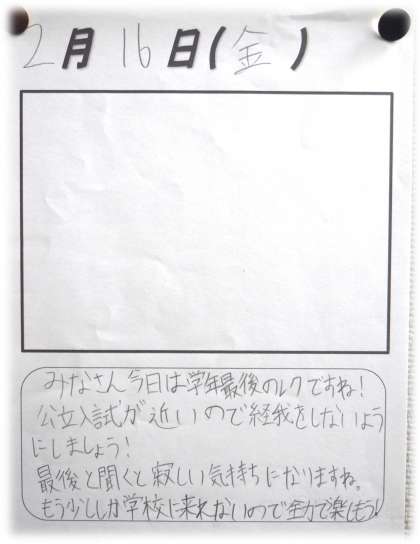 2月16日(金)
みなさん今日は学年最後のレクですね!
公立入試が近いので怪我をしないよう
にしましょう!
最後と聞くと寂しい気持ちになりますね。
もう少ししか学校に来れないので全力で楽しもう!